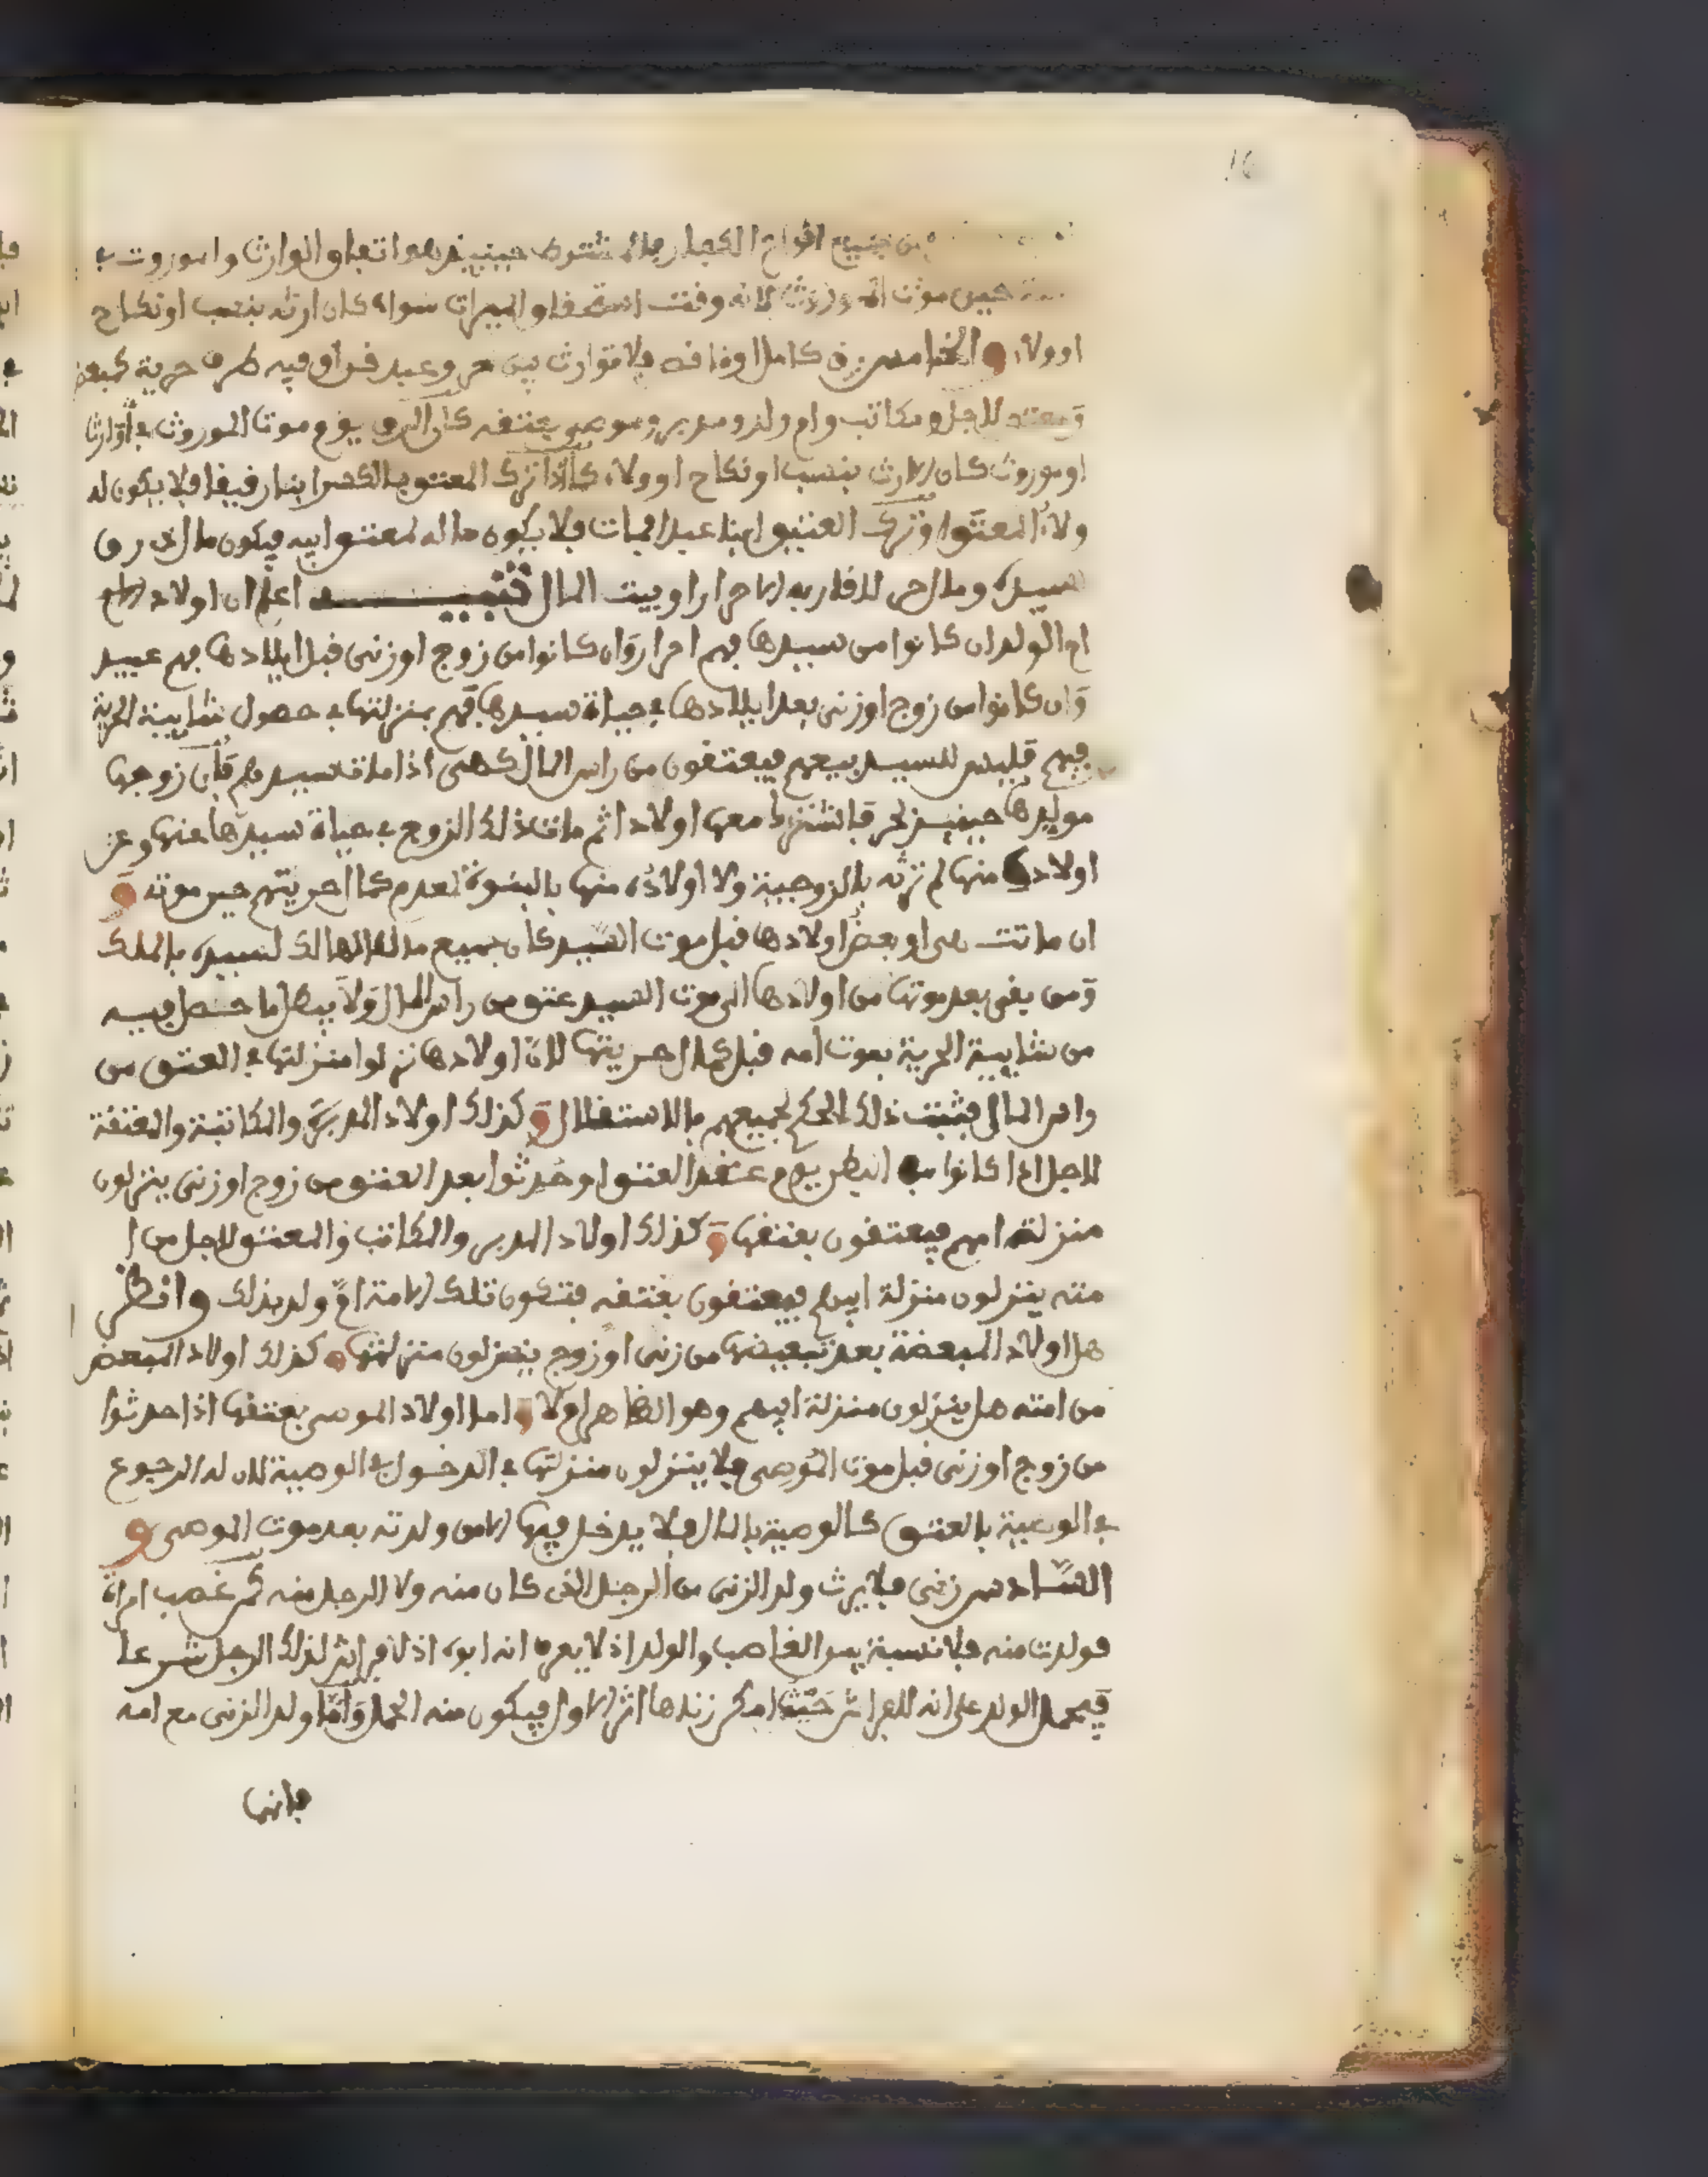 16
من جميع انواع الكفار فالمشترط حينئذ هو اتفاق الوارث والموروث في
حين موت الموروث لانه وقت استحقاق الميراث سواء كان ارثه بنسب او نكاح
او ولاء والخامس رق كامل او ناقص فلا توارث بين حر وعبد قن او فيه طرف حرية كمبعض
ومعتق لاجل ومكاتب وام ولد ومدبر وموصى بعتقه كان الرق يوم موت الموروث في وارث
او موروث كان الارث بنسب او نكاح او ولاء كما اذا ترك المعتق بالكسر ابنا رقيقا فلا يكون له
ولاء المعتق او ترك العتيق ابنا عبدا فمات فلا يكون ماله لمعتق ابيه فيكون مال ذى رق
لسيده ومال حر لاقاربه الاحرار او بيت المال تنبيه اعلم ان اولاد الام
ام الولد ان كانوا من سيدها فهم احرار وان كانوا من زوج او زنى قبل ايلادها فهم عبيد
وان كانوا من زوج او زنى بعد ايلادها في حياة سيدها فهم بمنزلتها في حصول شايبة الحرية
فيهم فليس للسيد بيعهم فيعتقون من راس المال كهى اذا مات سيدهم فان زوجها
سيدها حينئذ لحر فانشئ معها اولادا ثم مات ذلك الزوج في حياة سيدها عنها وعن
اولاده منها لم ترثه بالزوجية ولا اولاده منها بالبنوة لعدم كمال حريتهم حين موته و
ان ماتت هى او بعض اولادها قبل موت السيد كان جميع مال الهالك لسيده بالملك
ومن بقى بعد موتها من اولادها الى موت السيد عتق من راس المال ولا يبطل ما حصل فيه
من شايبة الحرية بموت امه قبل كمال حريتها لان اولادها نزلوا منزلتها في العتق من
راس المال فثبت ذلك الحكم لجميعهم بالاستقلال وكذلك اولاد المدبرة والمكاتبة والمعتقة
لاجل اذا كانوا في البطن يوم عقد العتق او حدثوا بعد العتق من زوج او زنى ينزلون
منزلة امهم فيعتقون بعتقها وكذلك اولاد المدبر والمكاتب والمعتق لاجل من ا
مته ينزلون منزلة ابيهم فيعتقون بعتقه فتكون تلك الامة ام ولد بذلك وانظر
هل اولاد المبعضة بعد تبعيضها من زنى او زوج ينزلون منزلتها وكذلك اولاد المبعض
من امته هل ينزلون منزلة ابيهم وهو الظاهر او لا واما اولاد الموصى بعتقها اذا حدثوا
من زوج او زنى قبل موت الموصى فلا ينزلون منزلتها في الدخول في الوصية لان له الرجوع
في الوصية بالعتق كالوصية بالمال فلا يدخل فيها الا من ولدته بعد موت الموصى و
السادس زنى فلا يرث ولد الزنى من الرجل الذى كان منه ولا الرجل منه كمن غصب امراة
فولدت منه فلا نسبة بين الغاصب والولد اذ لا يعرف انه ابوه اذ لا فراش لذلك الرجل شرعا
فيحمل الولد على انه للفراش حيث امكن زناها اثر الاول فيكون منه الحمل واما ولد الزنى مع امه
فانها